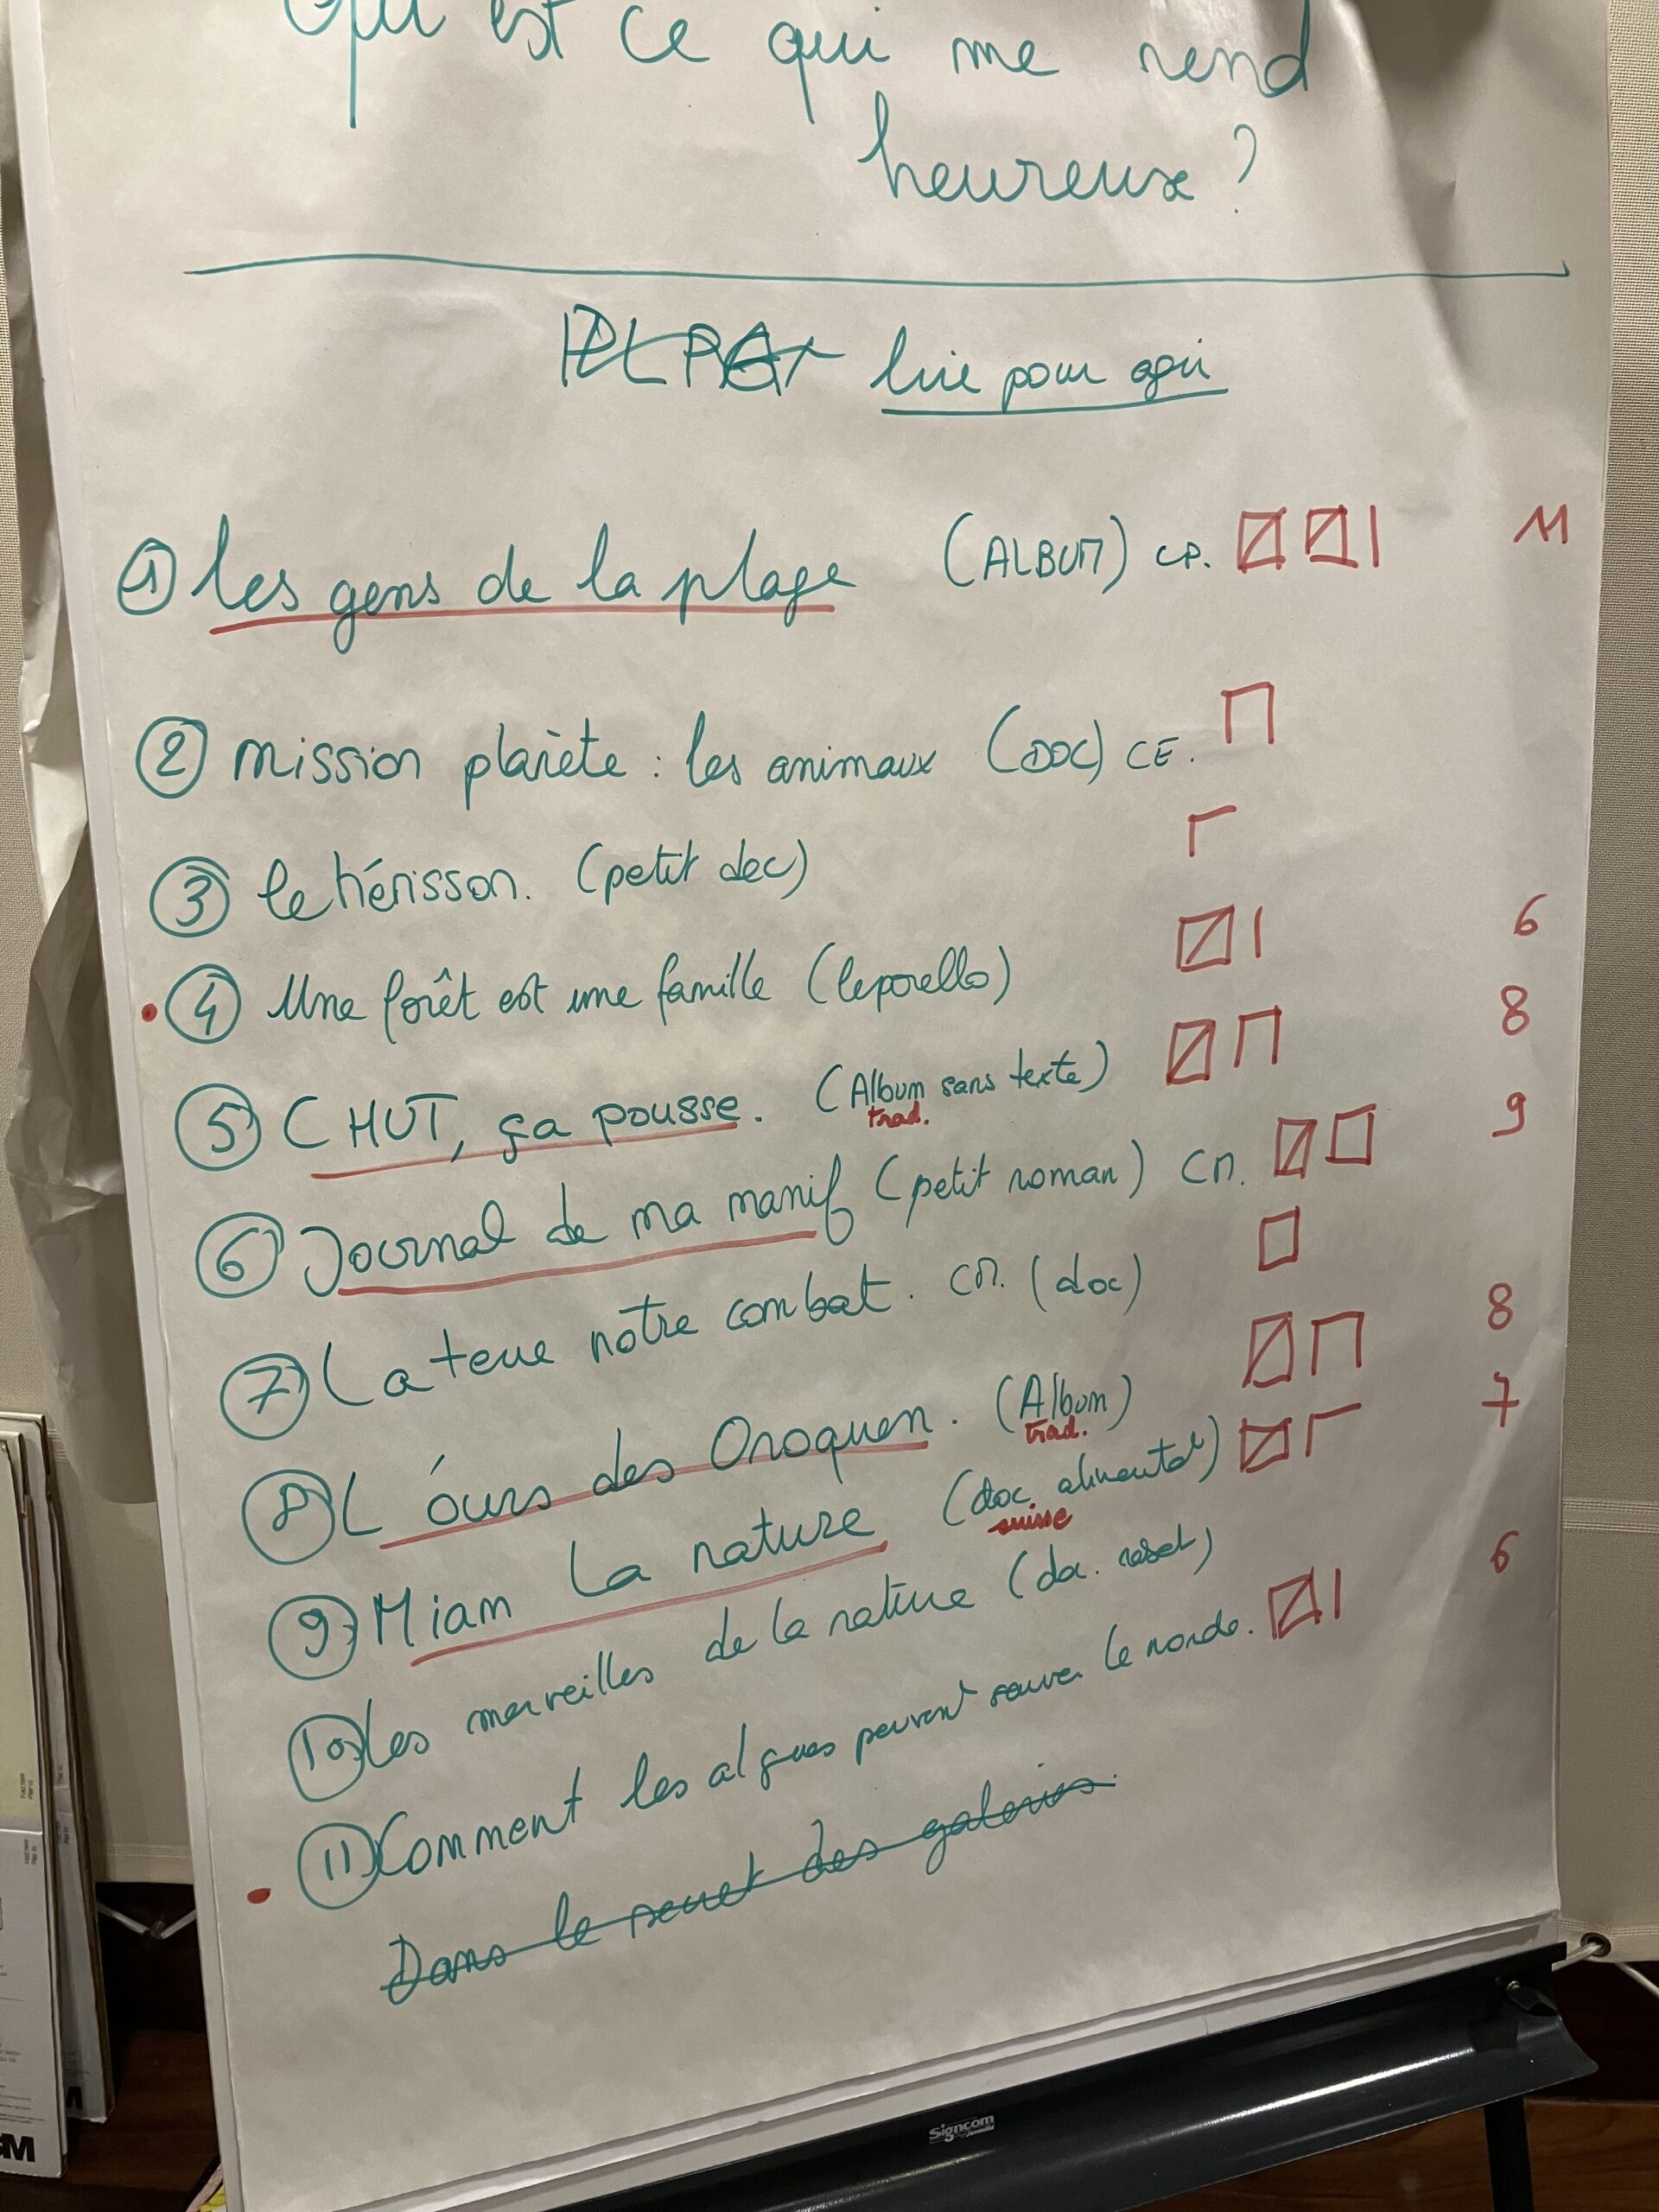 Qu'est ce qui me rend
heureux ?
lire pour agir
① Les gens de la plage (ALBUM) CP. 11
② Mission planète : les animaux (DOC) CE.
③ le hérisson. (petit doc)
④ Une forêt est une famille (leporello) 6
⑤ CHUT, ça pousse. (Album sans texte) 8
trad.
⑥ Journal de ma manif (petit roman) CM. 9
⑦ La terre notre combat. CM. (doc)
⑧ L'ours des Oroquen. (Album) 8
trad.
⑨ Miam La nature (doc. alimentat°) 7
suisse
⑩ Les merveilles de la nature (doc.
⑪ Comment les algues peuvent sauver le monde. 6
Dans le secret des galeries.
Signcom